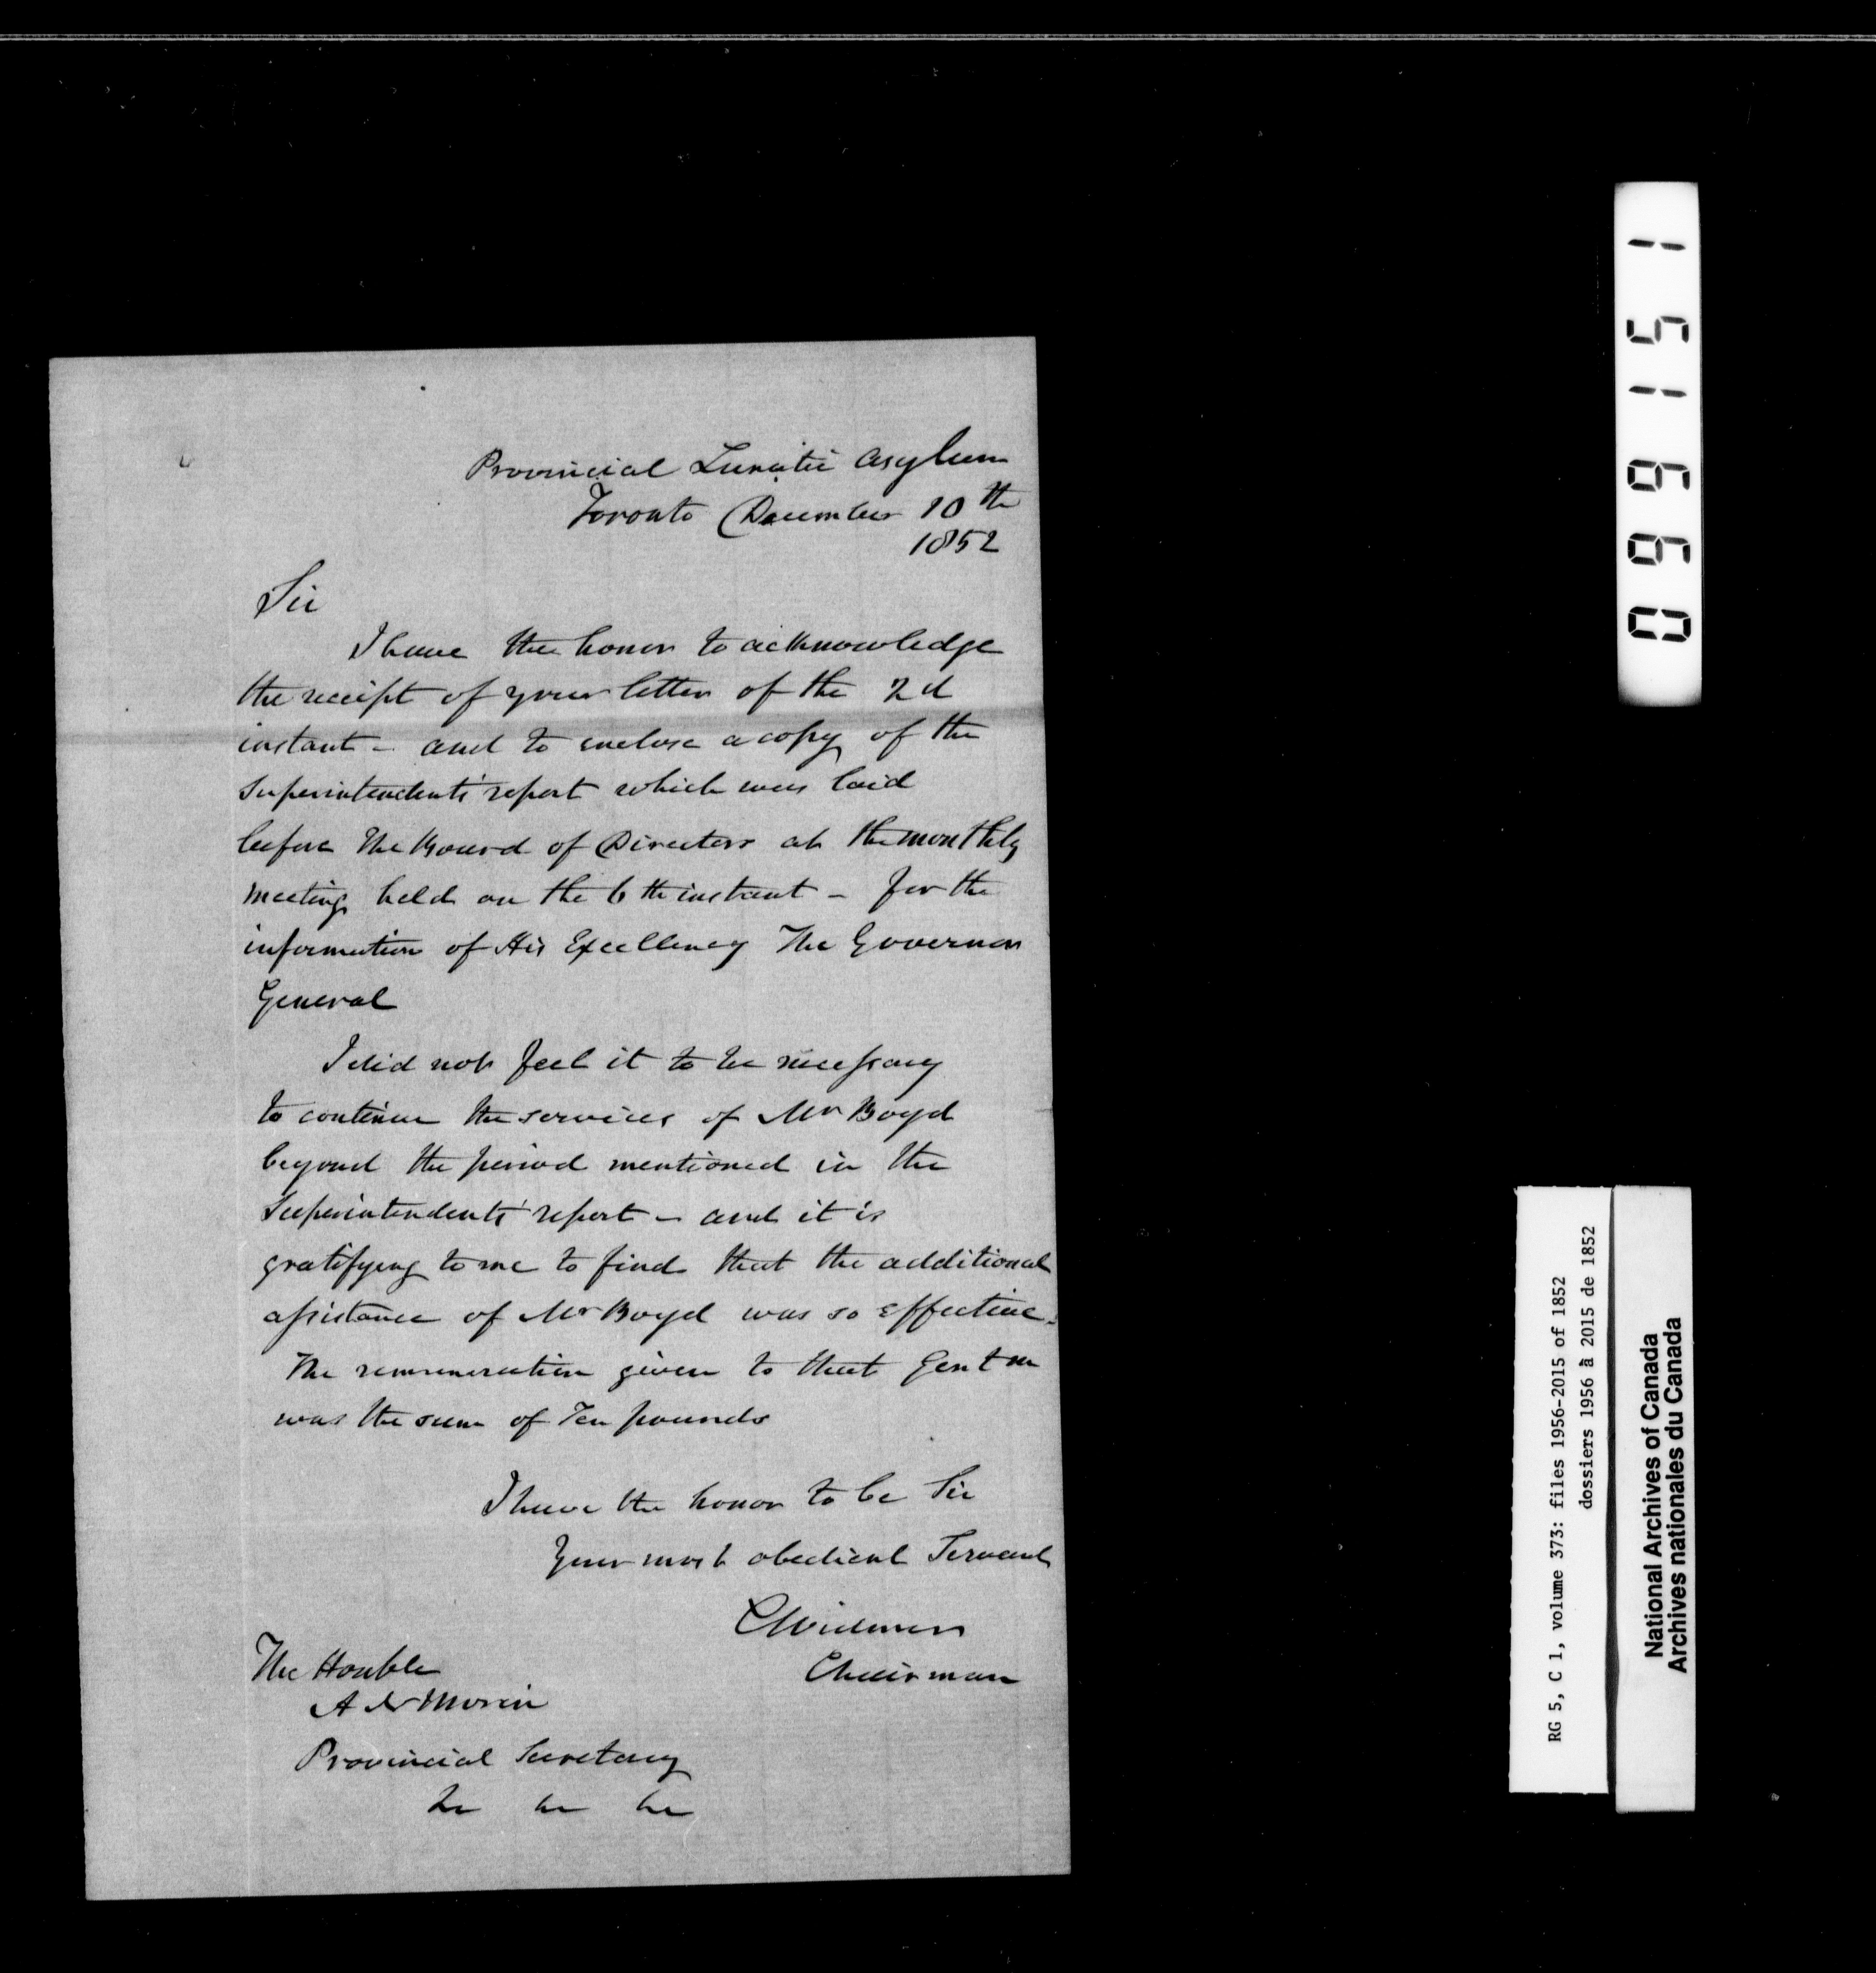 Provincial Lunatic Asylum
Toronto December 10th
1852
Sir
I have the honor to acknowledge
the receipt of your letter of the 2d
instant – and to enclose a copy of the
Superintendents' report which was laid
before the Board of Directors at the monthly
meeting held on the 6th instant – for the
information of His Excellency The Governor
General
I did not feel it to be necessary
to continue the services of Mr Boyd
beyond the period mentioned in the
Superintendents' report – and it is
gratifying to me to find that the additional
assistance of Mr Boyd was so effective.
The remuneration given to that Gentm
was the sum of Ten pounds
I have the honor to be Sir
Your most obedient Servant
C Widmer
Chairman
The Honble
A N Morin
Provincial Secretary
&c &c &c
0966151
RG 5, C 1, volume 373: files 1956-2015 of 1852
dossiers 1956 à 2015 de 1852
National Archives of Canada
Archives nationales du Canada